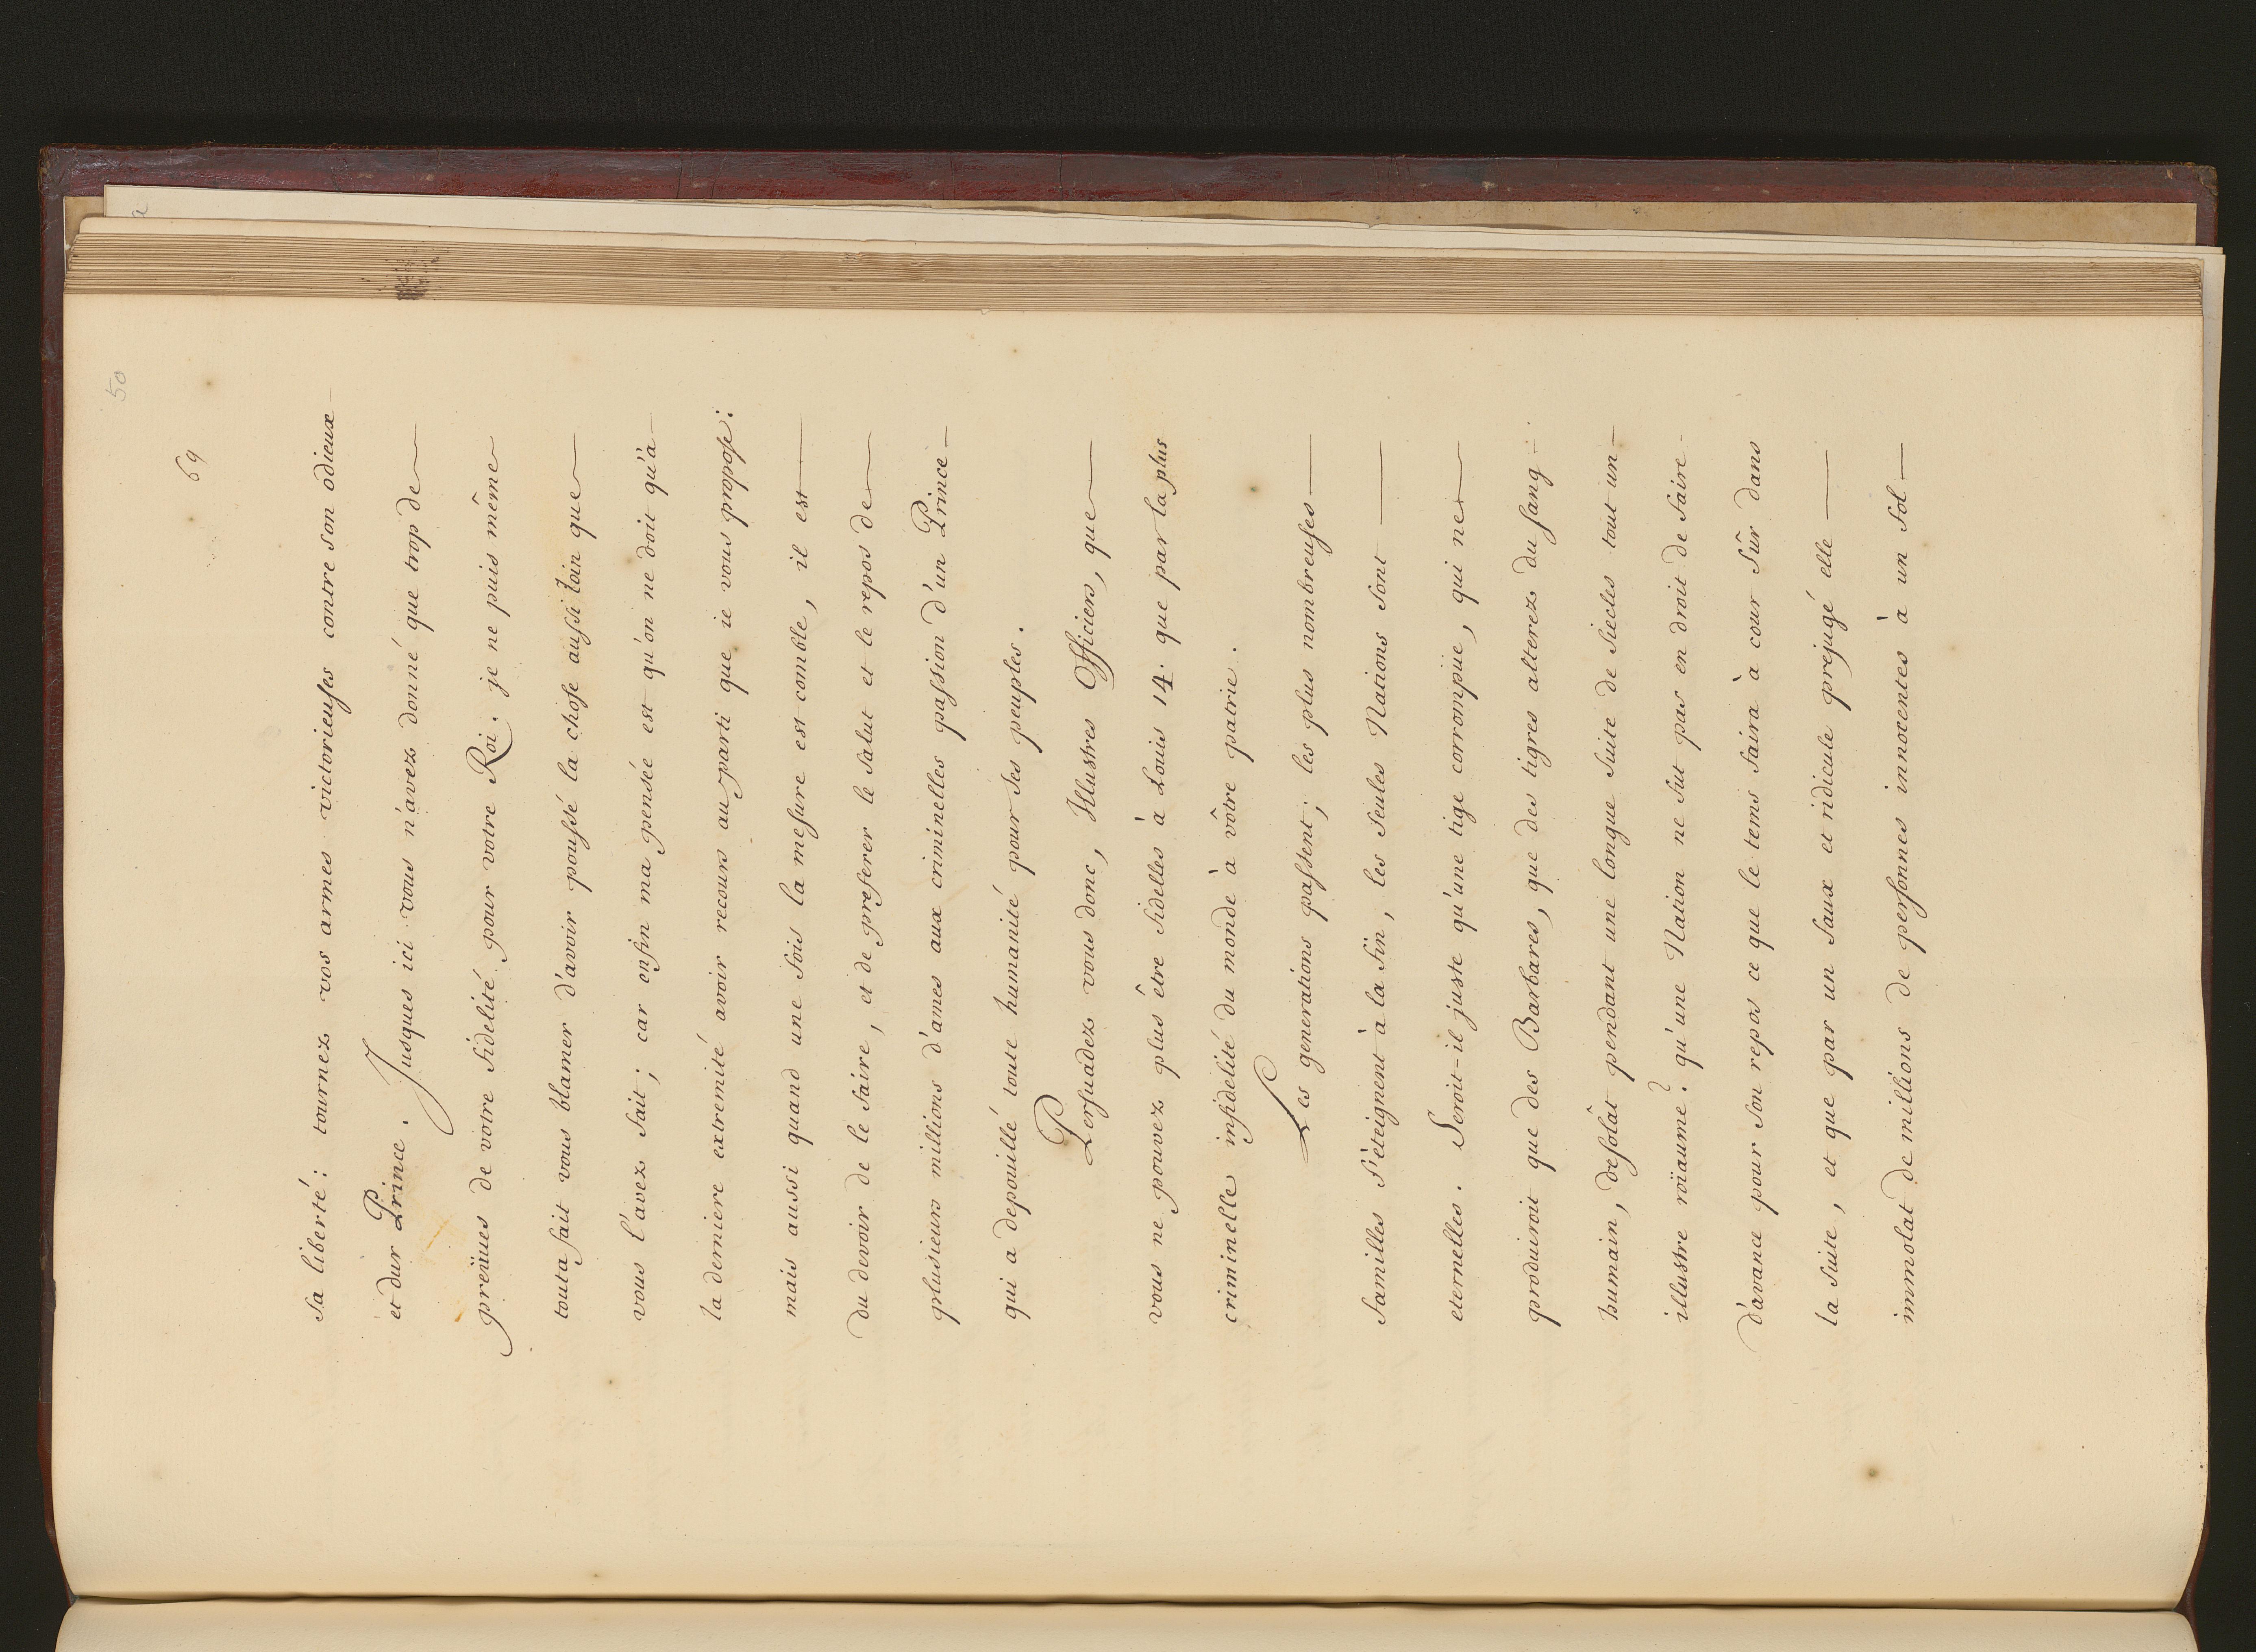 50
69
sa liberté: tournez vos armes victorieuses contre son odieux
et dur Prince. Jusques ici vous n'avez donné que trop de
preüues de votre fidelité pour votre Roi. je ne puis même
touta fait vous blamer d'avoir poussé la chose aussi loin que
vous l'avez fait; car enfin ma pensée est qu'on ne doit qu'à
la derniere extremité avoir recours au parti que ie vous propose:
mais aussi quand une fois la mesure est comble, il est
du devoir de le faire, et de preferer le salut et le repos de
plusieurs millions d'ames aux criminelles passion d'un Prince
qui a depouillé toute humanité pour ses peuples.
Persuadez vous donc, Illustres Officiers, que
vous ne pouvez plus être fidelles à Louis 14. que par la plus
criminelle infidelité du monde à vôtre patrie.
Les generations passent; les plus nombreuses
familles s'èteignent à la fin, les seules Nations sont
eternelles. Seroit-il juste qu'une tige corrompüe, qui ne
produiroit que des Barbares, que des tigres alterez du sang
humain, desolât pendant une longue suite de siecles tout un
illustre roïaume? qu'une Nation ne fut pas en droit de faire
d'avance pour son repos ce que le tems faira à cour sûr dans
la suite, et que par un faux et ridicule prejugé elle
immolat de millions de personnes innocentes à un sol